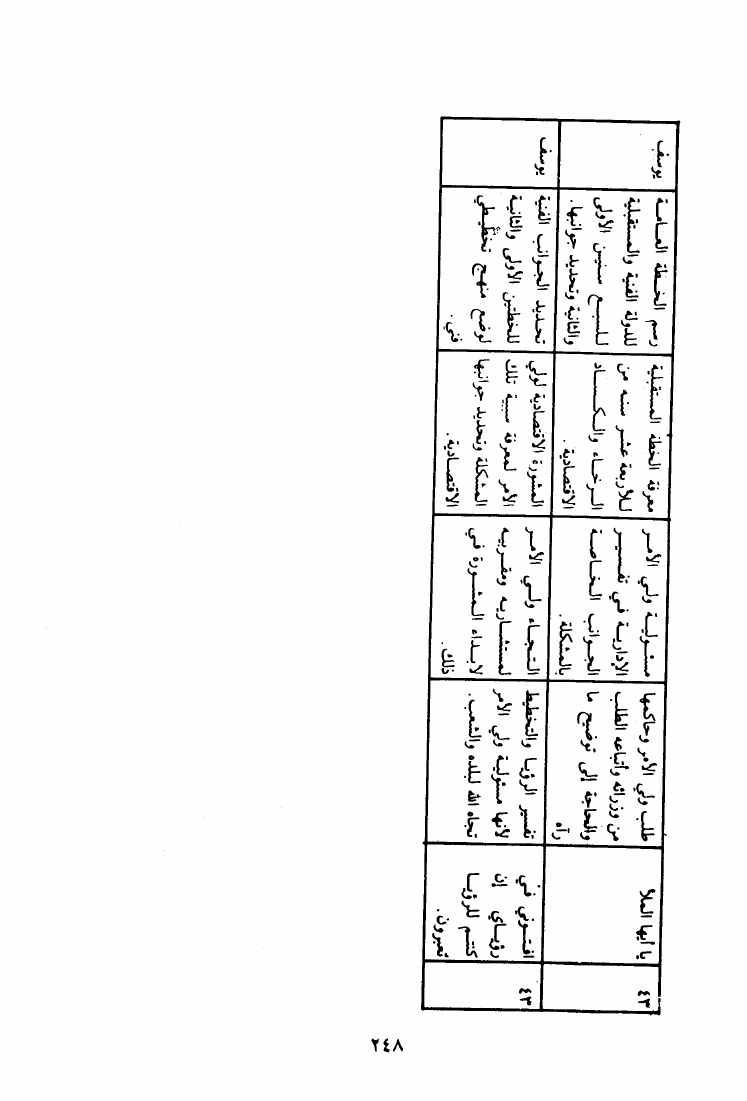 ٤٣
يا أيها الملأ
طلب ولي الأمر وحاكمها
من وزرائه وأتباعه الطلب
والحاجة إلى توضيح ما
رآه
مسئولية ولي الأمر
الإدارية في تفسير
الجوانب الخاصة
بالمشكلة.
معرفة الخطة المستقبلية
للأربعة عشر سنه من
الرخاء والكساد
الاقتصادية.
رسم الخطة العامة
للدولة الفنية والمستقبلية
للسبع سنين الأولى
والثانية وتحديد جوانبها.
يوسف
٤٣
افتوني في
رؤياي إن
كنتم للرؤيا
تعبرون.
تفسير الرؤيا والتخطيط
لأنها مسئولية ولي الأمر
تجاه الله لبلده والشعب.
التجاء ولي الأمر
لمستشاريه ومقربيه
لابداء المشورة في
ذلك.
المشورة الاقتصادية لولي
الأمر لمعرفة سببية تلك
المشكلة وتحديد جوانبها
الاقتصادية.
تحديد الجوانب الفنية
للخطتين الأولى والثانية
لوضع منهج تخطيطي
فني.
يوسف
٢٤٨